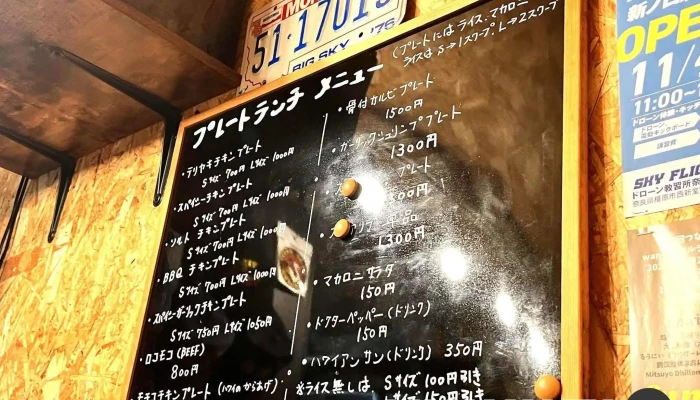 MON
51·17015
BIG SKY '76
プレートランチ メニュー
(プレートには ライス、マカロニ
ライスは S→1スクープ L→2スクープ
・テリヤキチキンプレート
Sサイズ 700円 Lサイズ 1000円
・スパイシーチキンプレート
Sサイズ 700円 Lサイズ 1000円
・ソルト チキンプレート
Sサイズ 700円 Lサイズ 1000円
・BBQ チキンプレート
Sサイズ 700円 Lサイズ 1000円
・スパイシーガーリックチキンプレート
Sサイズ 750円 Lサイズ 1050円
・ロコモコ (BEEF)
800円
・モチコチキンプレート (ハワイのからあげ)
・骨付カルビプレート
1500円
・ガーリックシュリンププレート
1300円
プレート
500円
単品
1300円
・マカロニサラダ
150円
・ドクターペッパー(ドリンク)
150円
・ハワイアンサン(ドリンク) 350円
※ライス無しは Sサイズ 100円引き
Lサイズ 150円引き
OPE
11/
11:00~
ドローン体験・キッチ
ドローン、
電動キックボード
講習費
SKY FLIG
ドローン教習所奈
奈良県橿原市西新堂